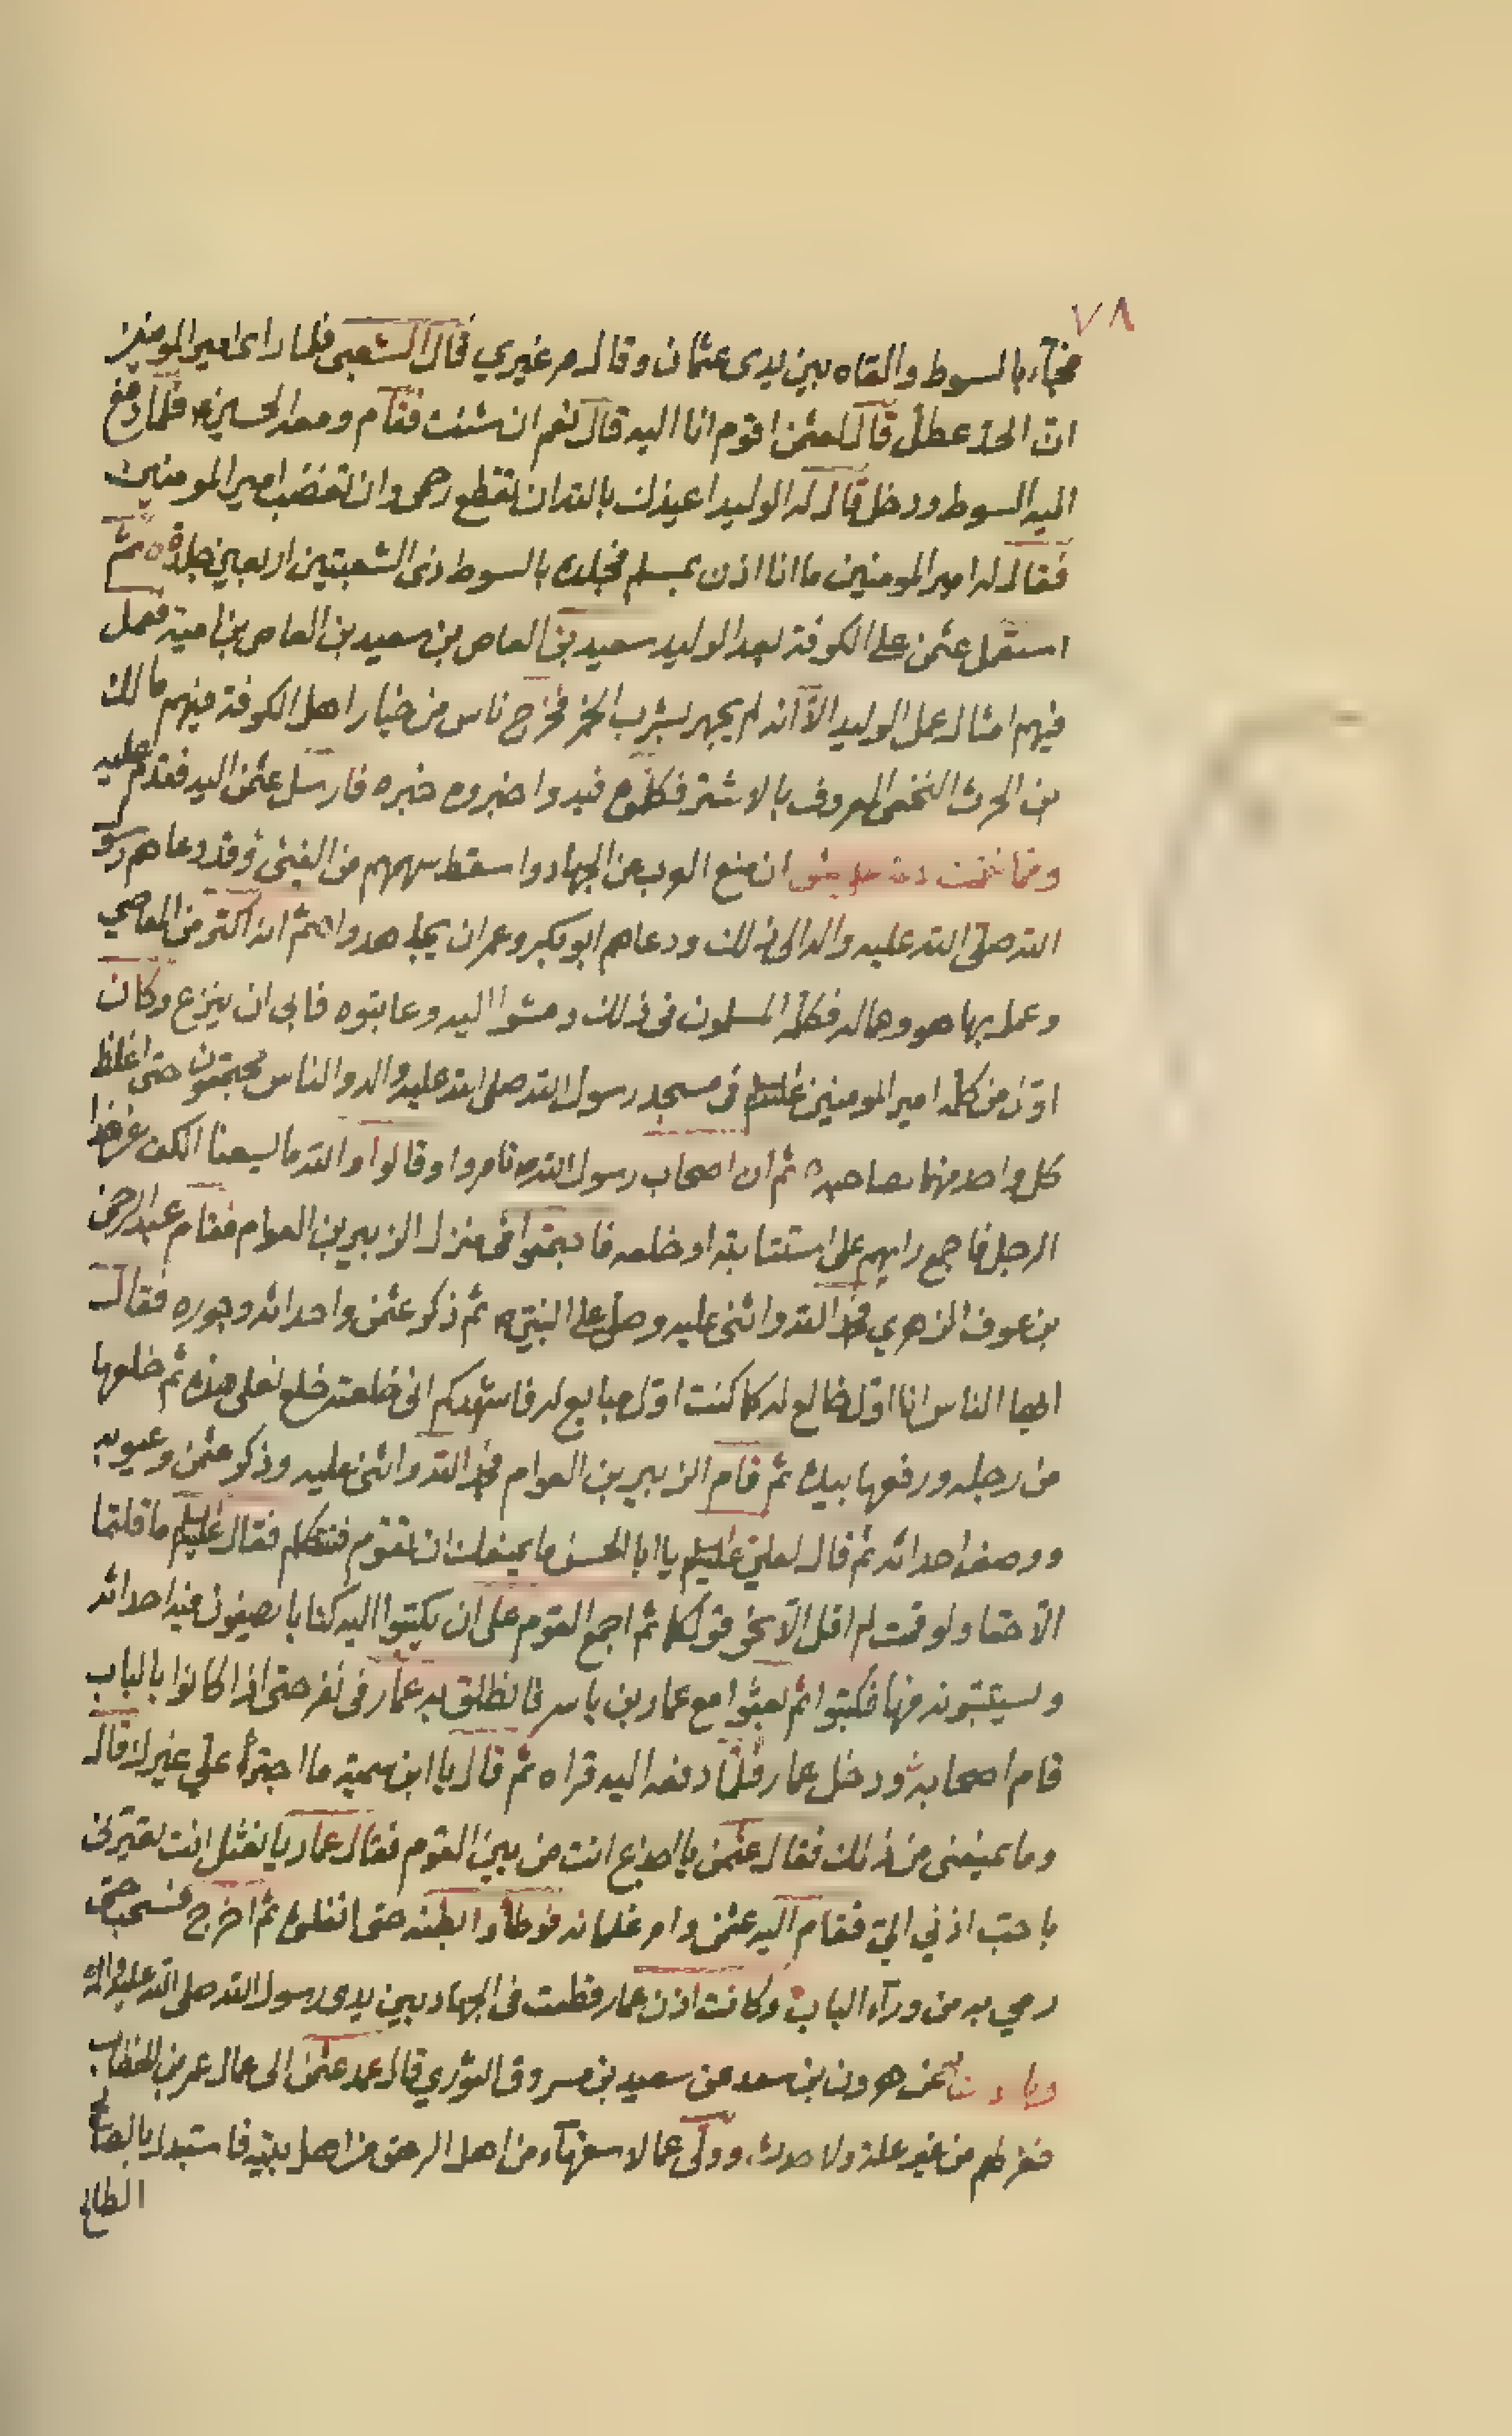 ٧٨
فجآء بالسوط والقاه بين يدى عثمان وقال مر غيري قال الشعبى فلما راى امير المومنين
ان الحد عطل قال لعثمن اقوم انا اليه قال نعم ان شئت فقام ومعه الحسين فلما دفع
اليه السوط ودخل قال له الوليد اعيذك بالله ان تقطع رحمى وان تغضب امير المومنين
فقال له امير المومنين ما انا اذن بمسلم فجلده بالسوط ذى الشعبتين اربعين جلدة ثم
استعمل عثمن على الكوفة بعد الوليد سعيد بن العاص بن سعيد بن العاص بن امية فعمل
فيهم امثال عمل الوليد الا انه لم يجهر بشرب الخمر فخرج ناس من خيار اهل الكوفة فيهم مالك
بن الحرث النخعى المعروف بالاشتر فكلموه فيه واخبروه خبره فارسل عثمن اليه فقدم عليه
ومما ان منع العرب من الجهاد واسقط سهمهم من الفيئ وقد دعاهم رسو
الله صلى الله عليه واله الى ذلك ودعاهم ابو بكر وعمر ان يجاهدوا ثم انه اكثر من المعاصي
وعمل بها هو وعماله فكلمه المسلمون فى ذلك ومشوا اليه وعاتبوه فابى ان ينزع وكان
اول من كلمه امير المومنين فى مسجد رسول الله صلى الله عليه واله والناس مجتمعون حتى اغلظ
كل واحد منهما لصاحبه ثم ان اصحاب رسول الله تامروا وقالوا والله ما يسعنا الكف عن هذا
الرجل فاجمع رايهم على استتابته او خلعه فاجتمعوا فى منزل الزبير بن العوام فقام عبد الرحمن
بن عوف الزهري فحمد الله واثنى عليه وصلى على النبى ثم ذكر عثمن واحداثه وجوره فقال
ايها الناس انا اول خالع له كما كنت اول مبايع له فاشهدكم انى خلعته خلع نعلى هذه ثم خلعها
من رجله ورفعها بيده ثم قام الزبير بن العوام فحمد الله واثنى عليه وذكر عثمن وعيوبه
ووصف احداثه ثم قال لعلي يا ابا الحسن ما يمنعك ان تقوم فتتكلم فقال ما قلتما
الا حقا ولو قمت لم اقل الا نحو قولكما ثم اجمع القوم على ان يكتبوا اليه كتابا يصفون فيه احداثه
ويستعتبونه منها فكتبوا ثم بعثوا مع عمار بن ياسر فانطلق به عمار فى نفر حتى اذا كانوا بالباب
قام اصحابه ودخل عمار فلما دفعه اليه قراه ثم قال يا ابن سمية ما اجترأ علي غيرك قال
وما يمنعنى من ذلك فقال عثمن يا اجدع انت من بين القوم فقال عمار يا نعثل انت تعيرنى
باحب اذني الي فقام اليه عثمن وامر غلمانه فوطأوا بطنه حتى اثقلوه ثم اخرج فسحب حتى
رمي به من ورآء الباب وكانت اذن عمار قطعت فى الجهاد بين يدى رسول الله صلى الله عليه واله
عن هرون بن سعد عن سعيد بن مسروق الثوري قال عمد عثمن الى عمال عمر بن الخطاب
فعزلهم من غير علة ولا حدث وولى عمالا سفهآء من اهل الرهق من اهل بيته فاستبدل بالصالح
الطالح